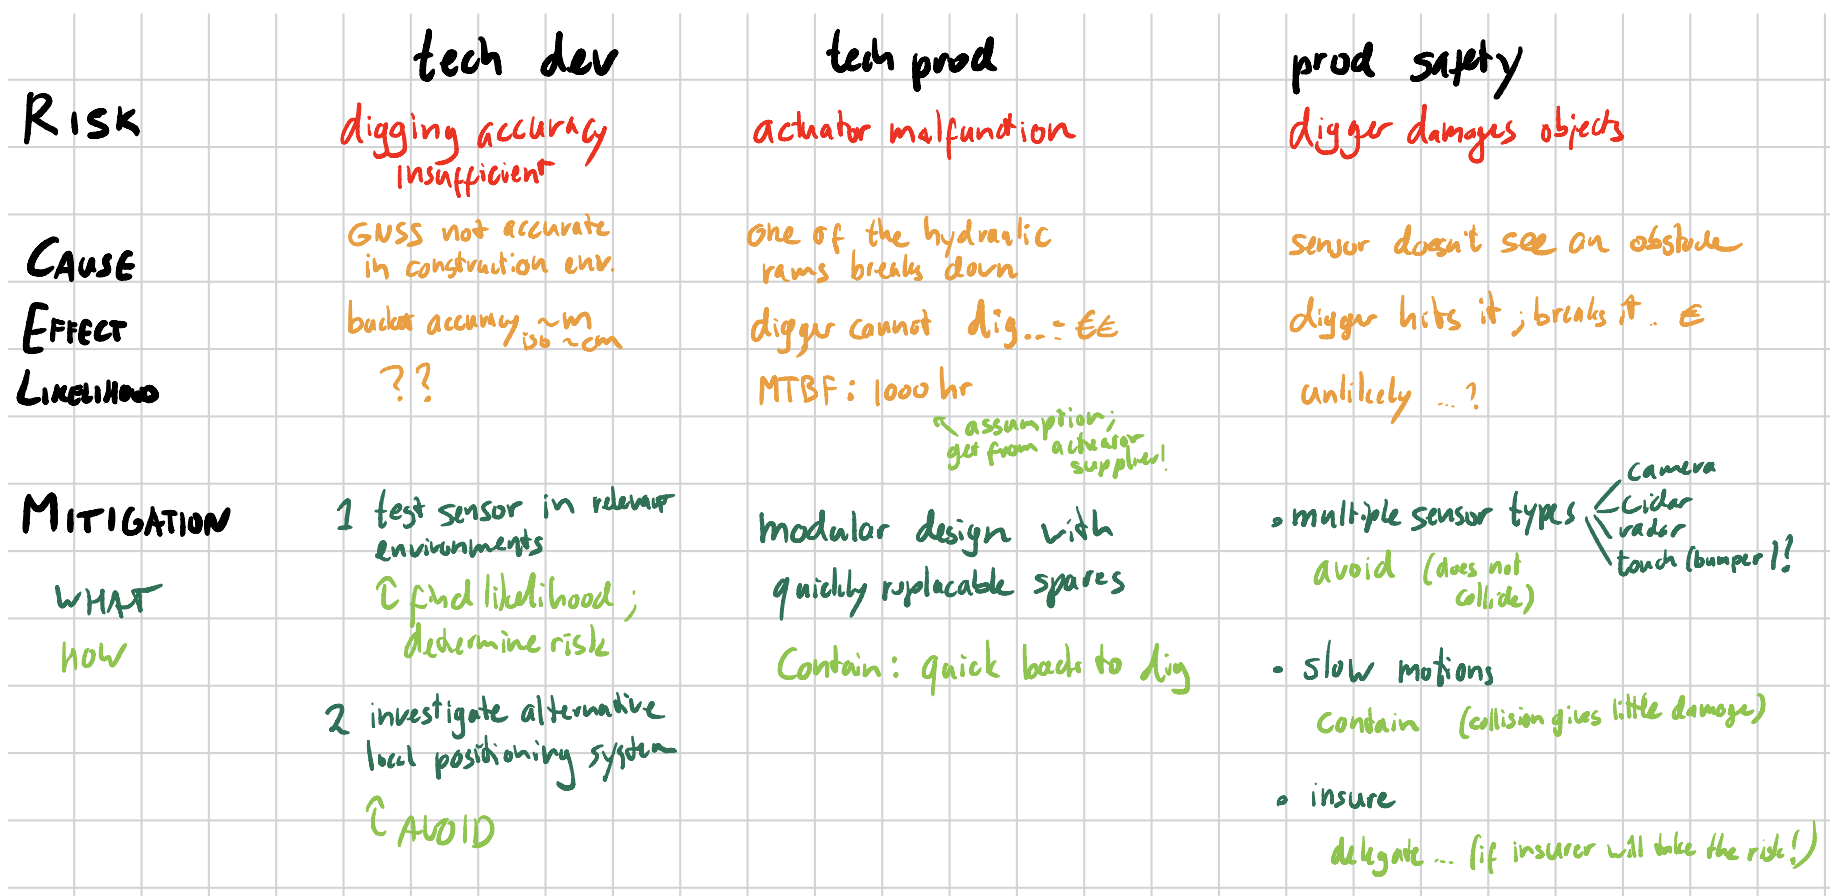 tech dev
tech prod
prod safety
RISK
digging accuracy
insufficient
actuator malfunction
digger damages objects
CAUSE
GNSS not accurate
in construction env.
one of the hydraulic
rams breaks down
sensor doesn't see an obstacle
EFFECT
bucket accuracy ~m
iso ~cm
digger cannot dig...: €€
digger hits it; breaks it.. €
LIKELIHOOD
??
MTBF: 1000 hr
assumption;
get from actuator
supplier!
unlikely ...?
MITIGATION
WHAT
HOW
1 test sensor in relevant
environments
↑ find likelihood;
determine risk
2 investigate alternative
local positioning system
↑ AVOID
modular design with
quickly replacable spares
Contain: quick back to dig
• multiple sensor types
camera
Lidar
radar
touch (bumper)!
avoid (does not
collide)
• slow motions
contain (collision gives little damage)
• insure
delegate... (if insurer will take the risk!)